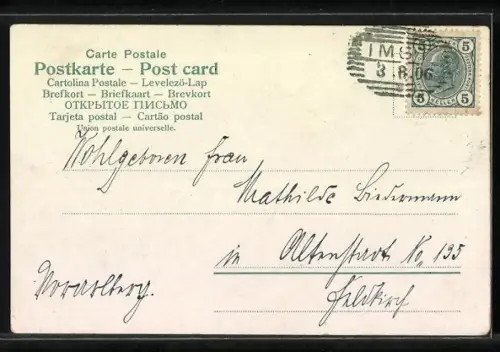 Carte Postale
Postkarte – Post card
Cartolina Postale – Levelező-Lap
Brefkort – Briefkaart – Brevkort
ОТКРЫТОЕ ПИСЬМО
Tarjeta postal – Cartão postal
Union postale universelle.
IMS
3.8.06
5 5
5 5
Wohlgeboren Frau
Mathilde Biedermann
in Altenstadt No. 135
Vorarlberg.
Feldkirch